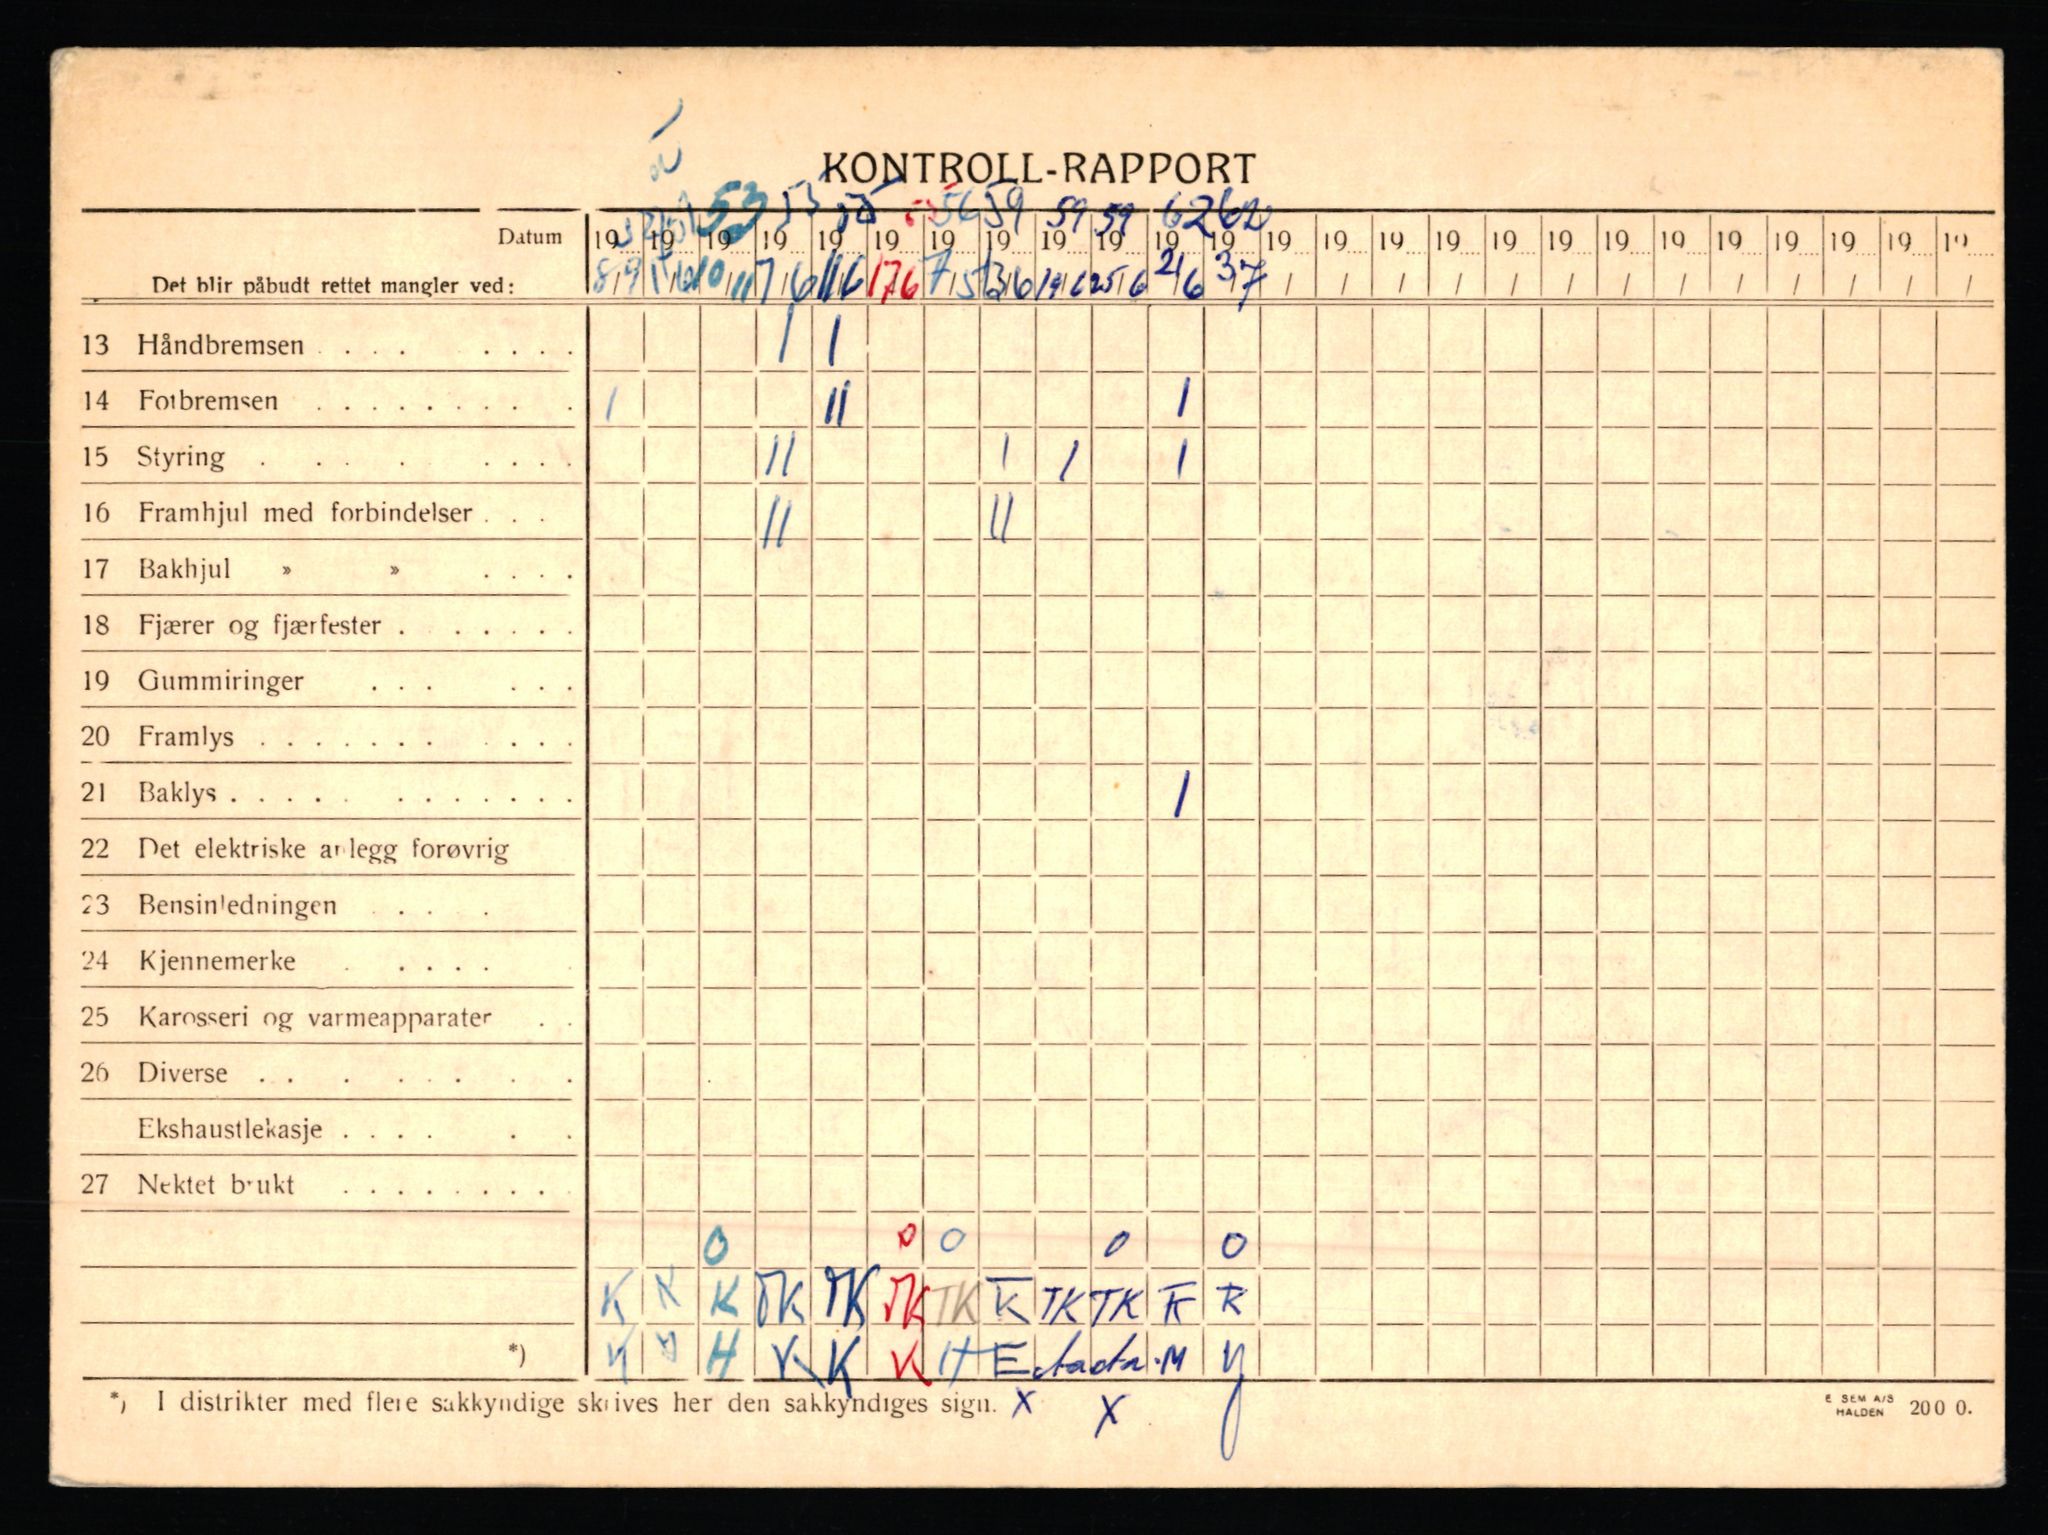 KONTROLL-RAPPORT
53 53 55 55 56 59 59 59 62 62
Datum 19 19 19 19 19 19 19 19 19 19 19 19 19 19 19 19 19 19 19 19 19 19 19 19 19
Det blir påbudt rettet mangler ved: 8/9 10/11 7/6 11/6 17/6 7/5 13/6 19/6 25/6 21/6 3/7 / / / / / / / / / / / / /
13 Håndbremsen . . . . . . . 1 1
14 Fotbremsen . . . . . . . . . 1 11 1
15 Styring . . . . . . . . 11 1 1 1
16 Framhjul med forbindelser . . . 11 11
17 Bakhjul » » . . . .
18 Fjærer og fjærfester . . . . . . .
19 Gummiringer . . . . . .
20 Framlys . . . . . . . . . . .
21 Baklys . . . . . . . . . . . . 1
22 Det elektriske anlegg forøvrig
23 Bensinledningen . . . .
24 Kjennemerke . . . . .
25 Karosseri og varmeapparater . .
26 Diverse . . . . . . . .
Ekshaustlekasje . . . . . .
27 Nektet brukt . . . . . . . . .
0 0 0 0 0
K K K TK TK TK TK K TK TK K K
*) H K K K H E M
*) I distrikter med flere sakkyndige skrives her den sakkyndiges sign. X X
E SEM A/S
HALDEN 200 0.